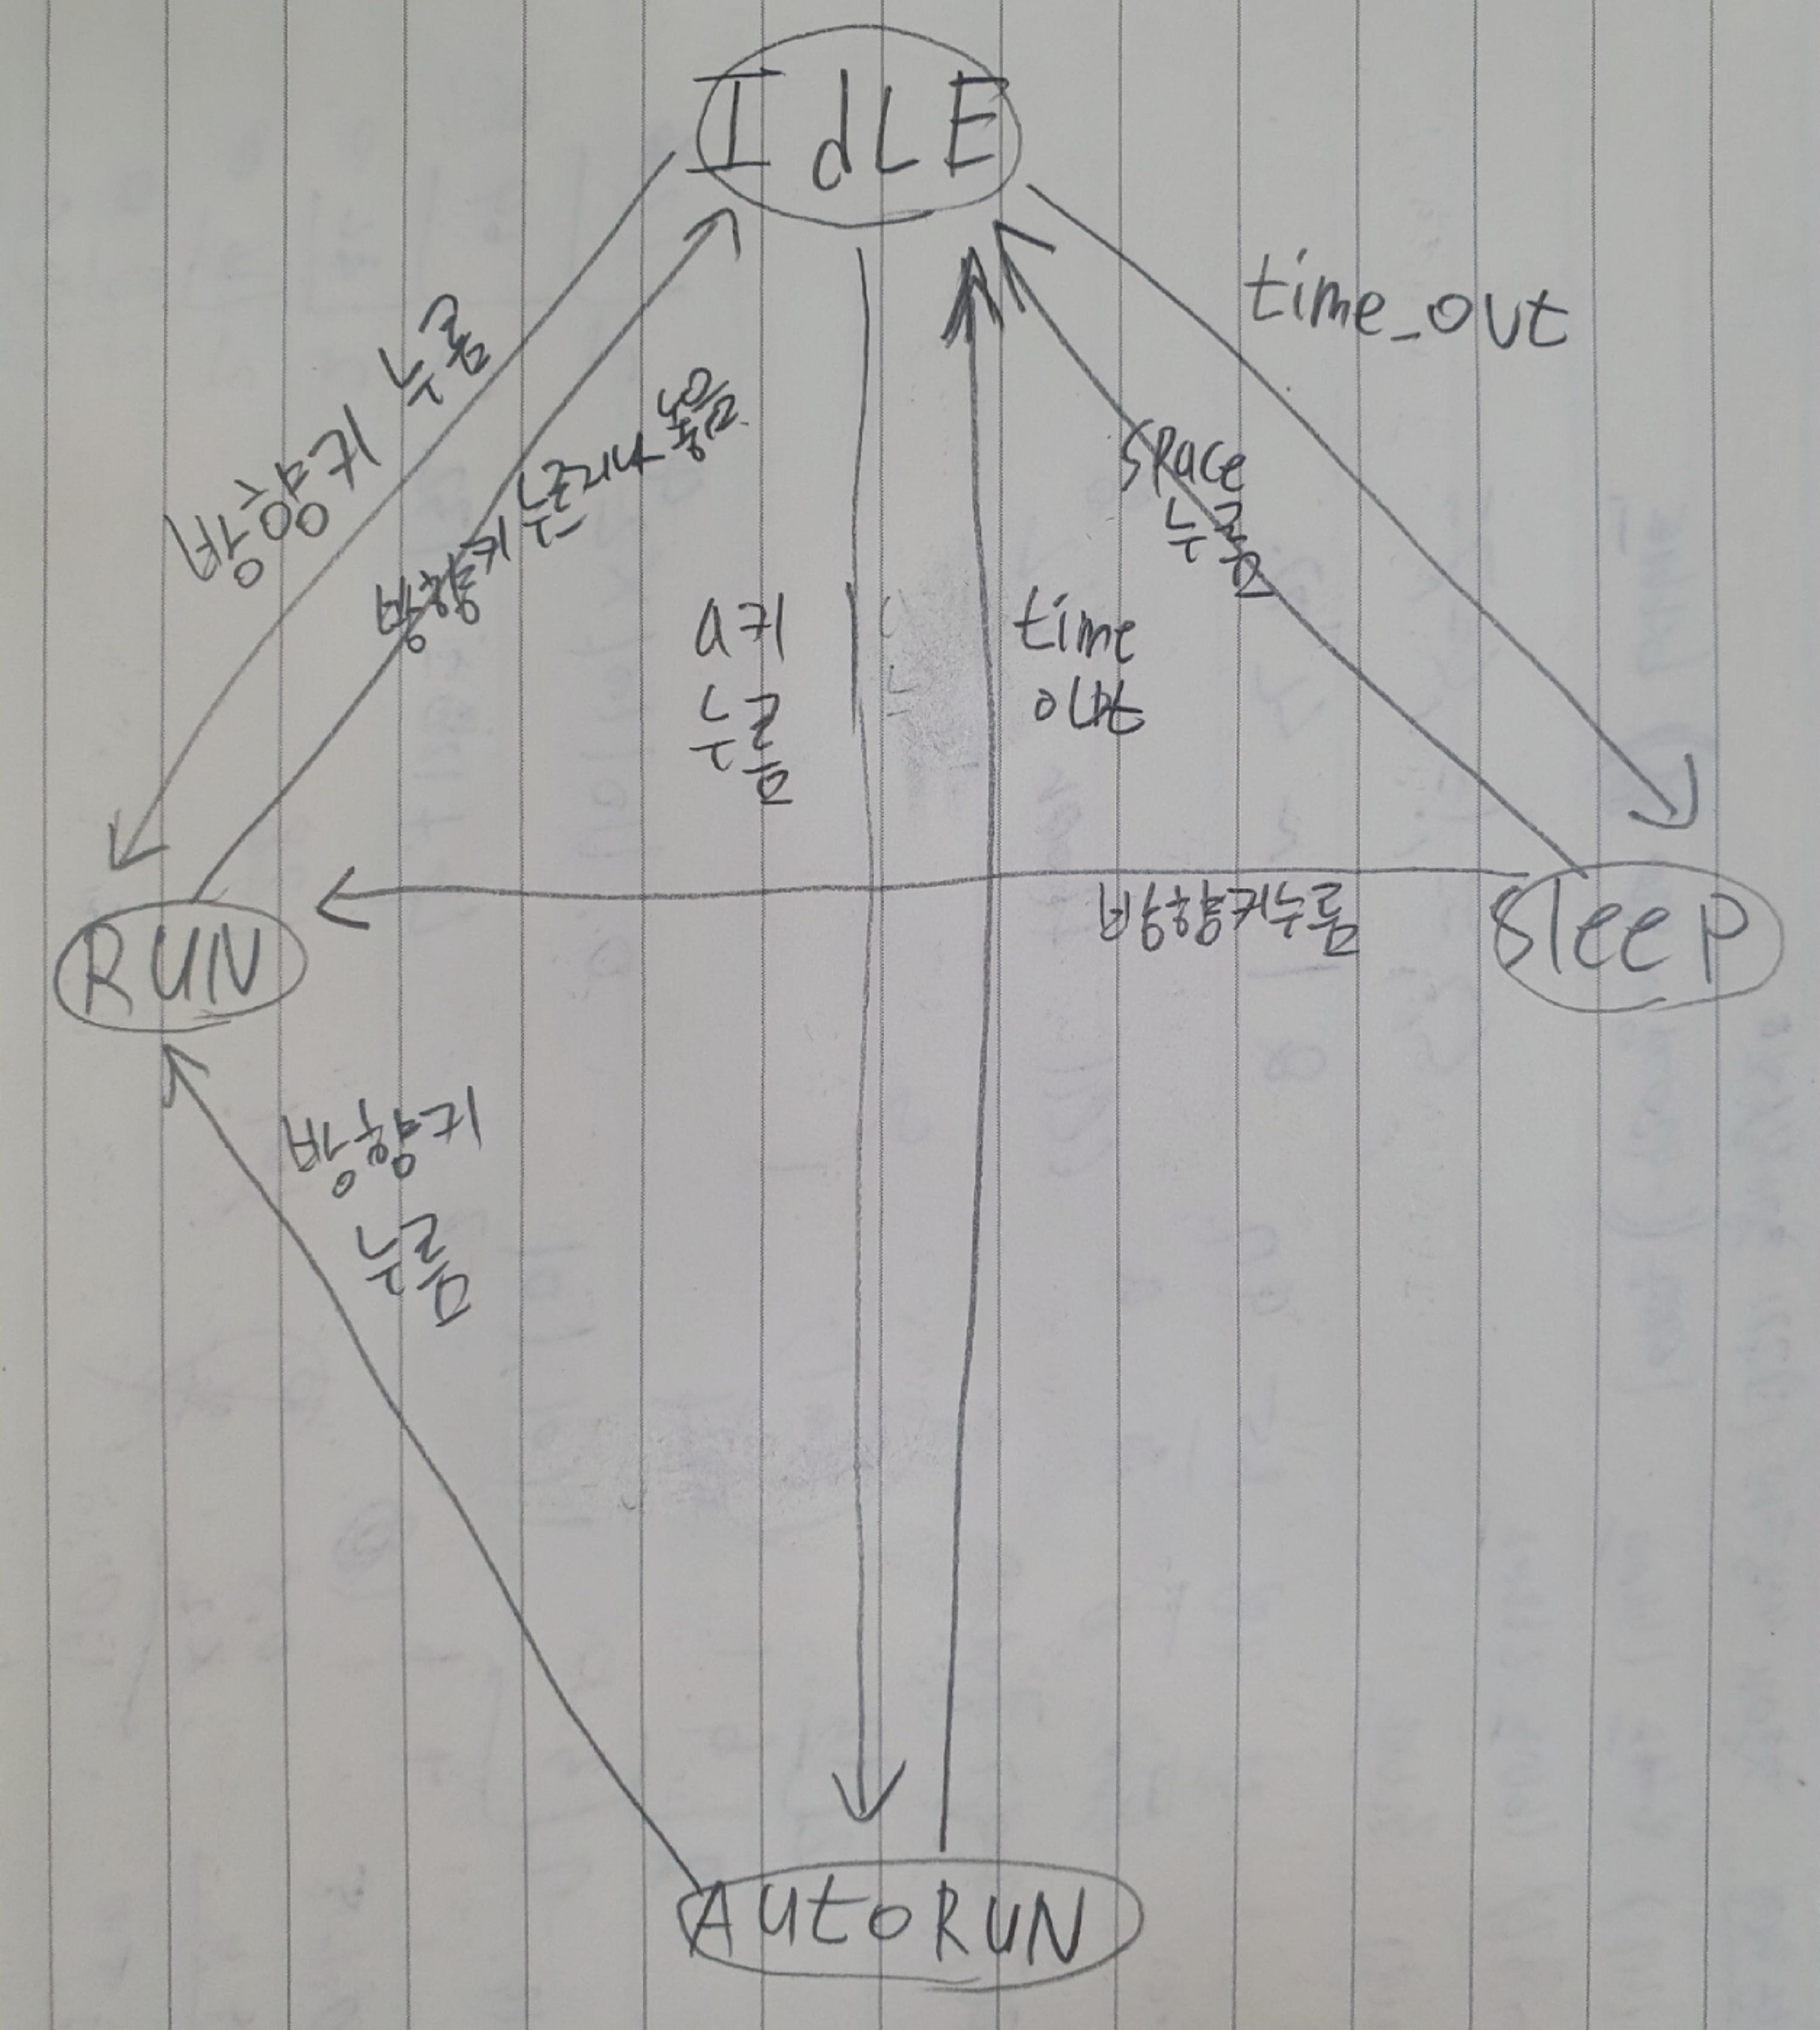 IdLE
time_out
방향키 누름
방향키 누르거나 놓음
space
누름
a키
누름
time
out
방향키누름
RUN
Sleep
방향키
누름
AUtoRUN